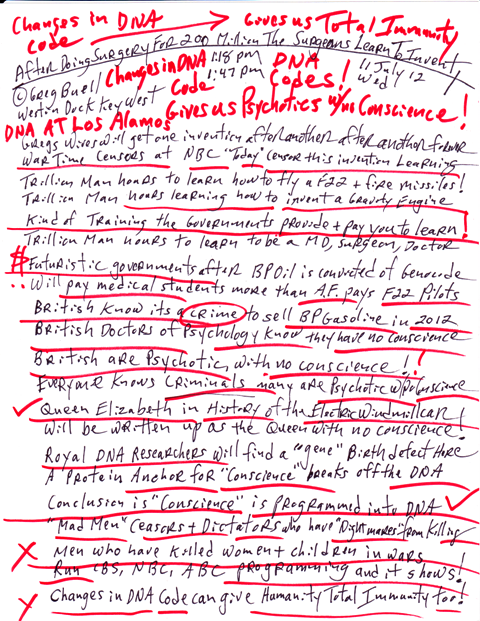 Changes in DNA → Gives us Total Immunity
Code
After Doing Surgery For 200 Million The Surgeons Learn To Invent
© Greg Buell 1:18 pm DNA 11 July 12
Changes in DNA 1:47 pm Codes! Wed
Westin Dock Key West Code
Gives us Psychotics w/no Conscience!
DNA AT Los Alamos
Gregs Wives will get one invention after another after another forever
War Time Censors at NBC "Today" censor this invention Learning
Trillion Man hours to learn how to fly a F22 + fire missiles!
Trillion Man hours learning how to invent a Gravity Engine
Kind of Training the Governments provide + pay you to learn!
Trillion Man hours to learn to be a MD, Surgeon, Doctor
Futuristic governments after BP Oil is convicted of Genocide
Will pay medical students more than A.F. pays F22 Pilots
British Know its a crime to sell BP Gasoline in 2012
British Doctors of Psychology Know they have no conscience
British are Psychotic, with no conscience!!
Everyone Knows Criminals many are Psychotic w/no conscience
✓ Queen Elizabeth in History of the Electric Windmill car!
Will be written up as the Queen with no conscience!
Royal DNA Researchers will find a "gene" Birth defect Here
A Protein Anchor for "Conscience" breaks off the DNA
Conclusion is "Conscience" is programmed into DNA ✓
"Mad Men" Ceasers + Dictators who have "Nightmares" from Killing
X Men who have Killed Women + children in wars
Run CBS, NBC, ABC programming and it shows!
X Changes in DNA Code can give Humanity Total Immunity too!